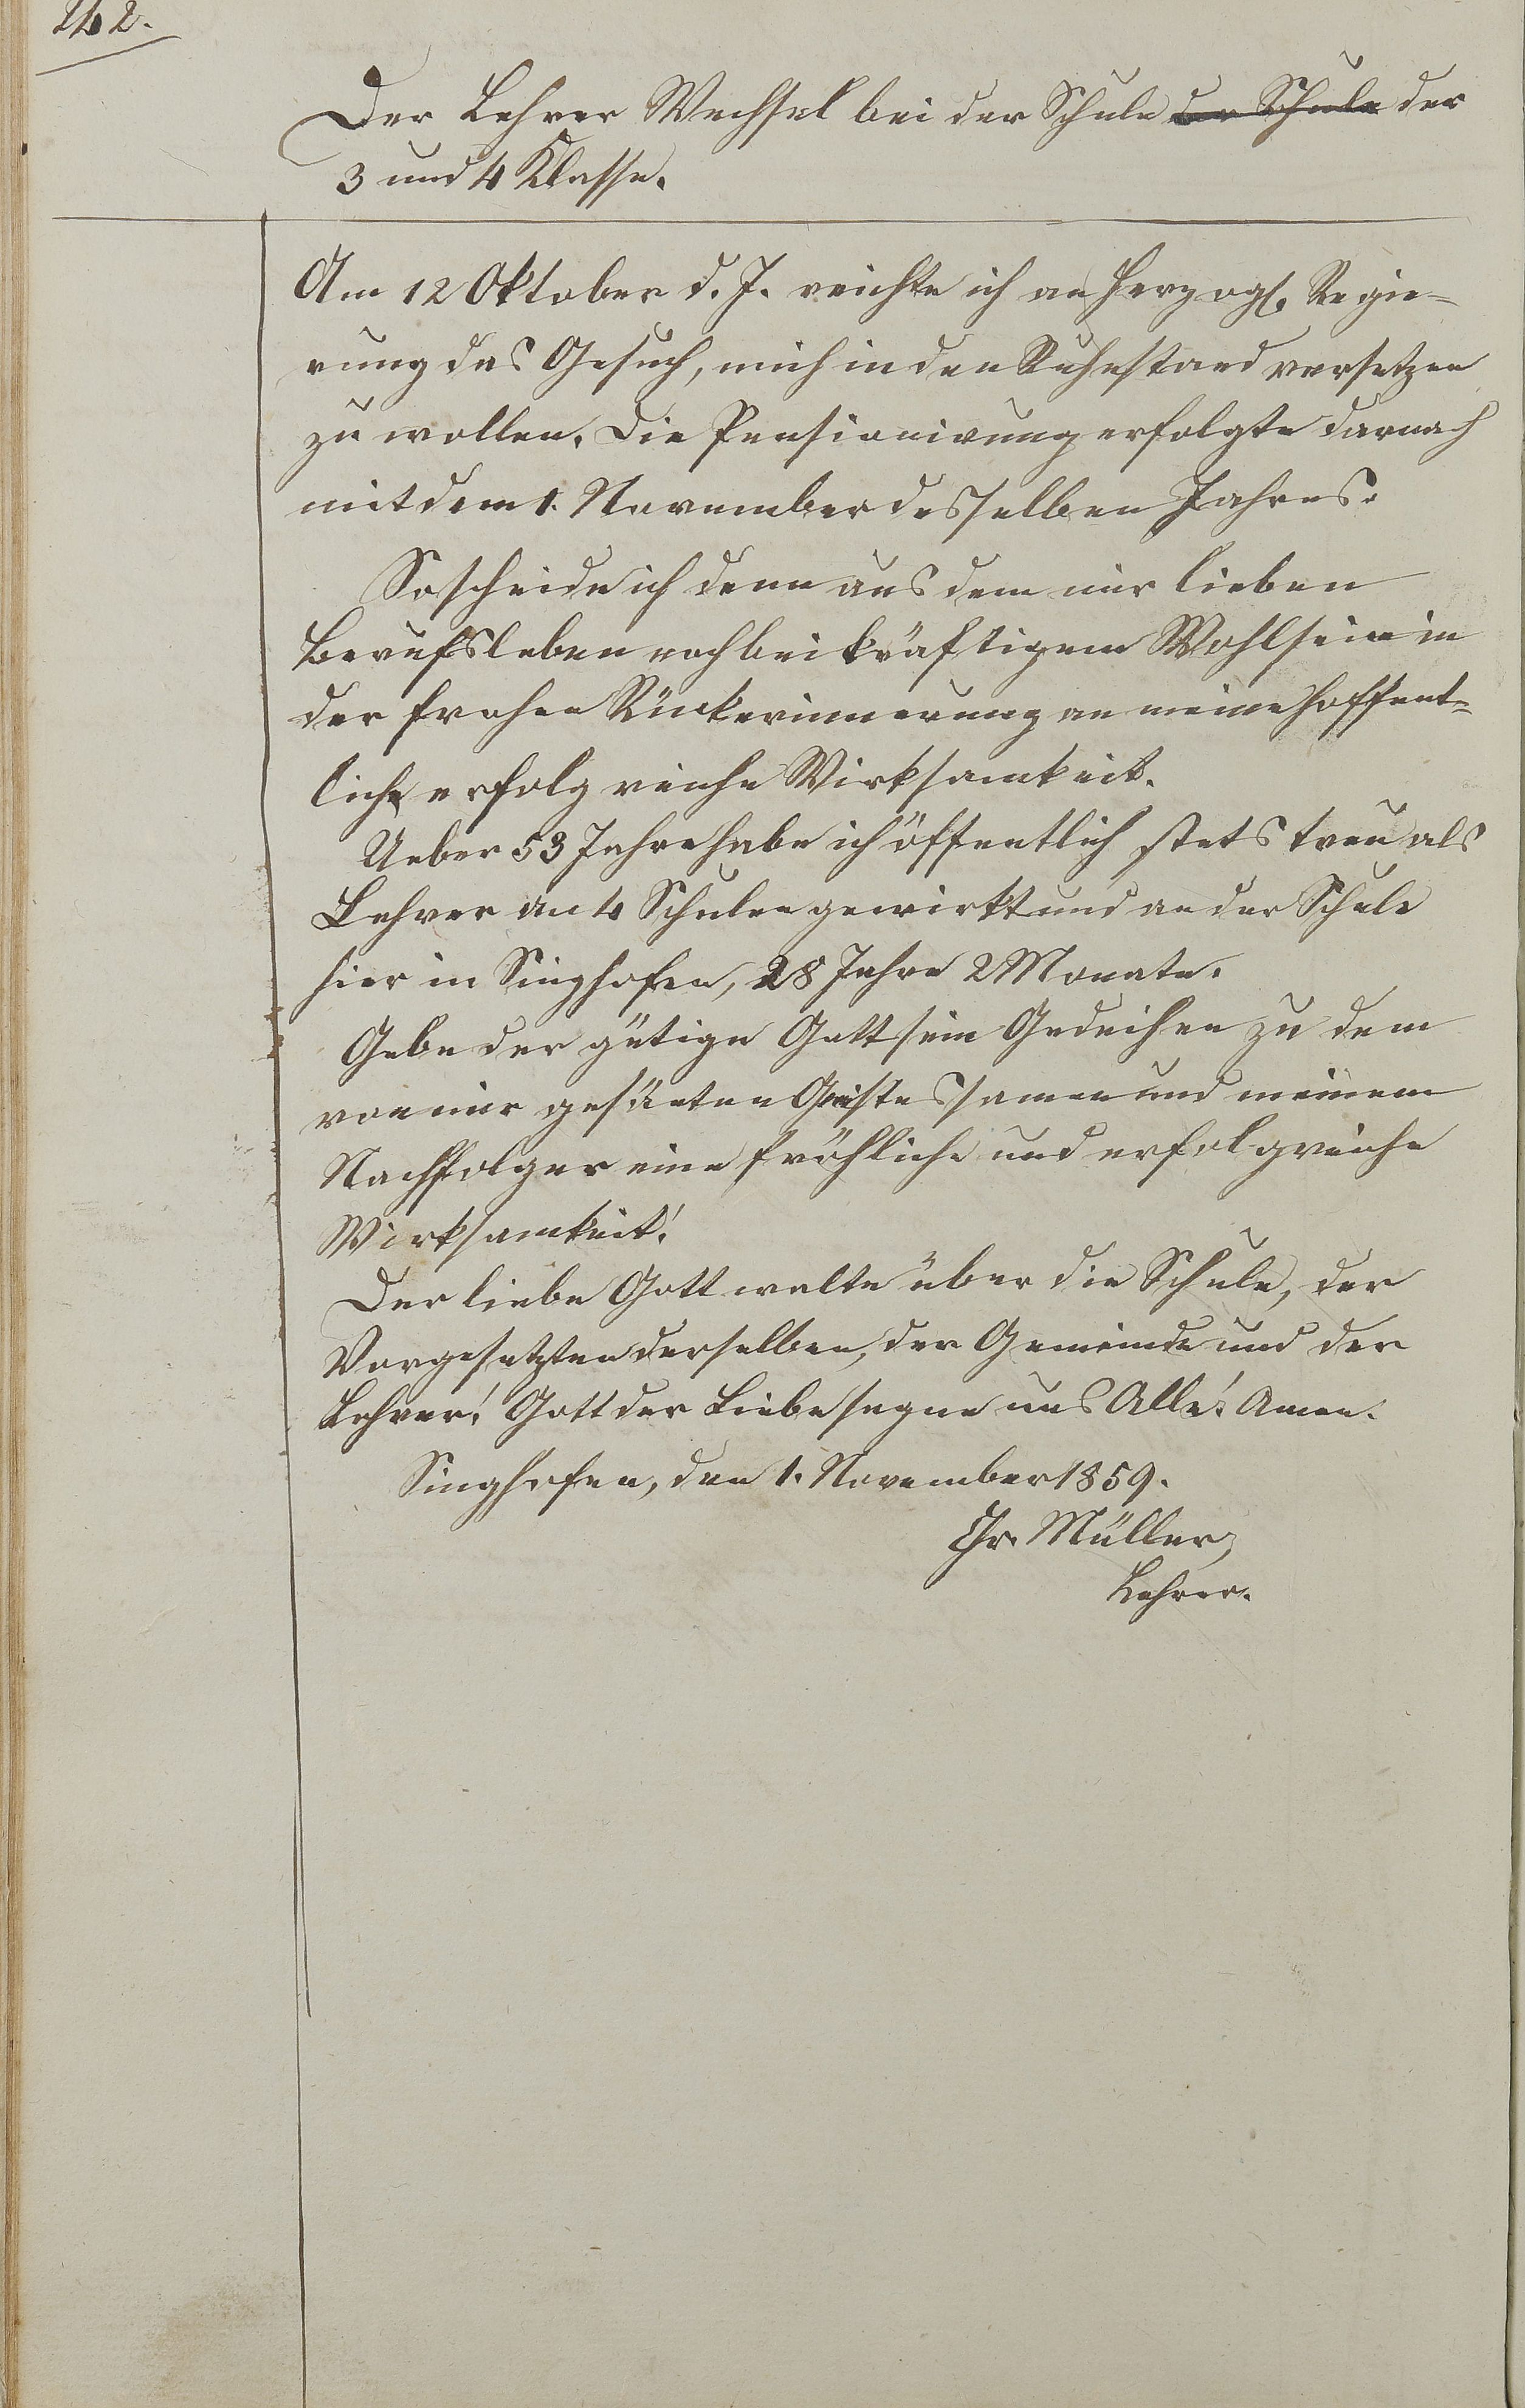 242.
Der Lehrer Wechsel bei der Schule der Schule der
3 und 4 Klasse.
Am 12 Oktober d. J. reichte ich an Herzogl. Regie-
rung das Gesuch, mich in den Ruhestand versetzen
zu wollen. Die Pensionirung erfolgte darnach
mit dem 1. November desselben Jahres.
So scheide ich denn aus dem mir lieben
Berufsleben noch bei kräftigem Wohlsein in
der frohen Rückerinnerung an meine hoffent-
lich erfolgreiche Wirksamkeit.
Ueber 53 Jahre habe ich öffentlich stets treu als
Lehrer an 4 Schulen gewirkt und an der Schule
hier in Singhofen, 28 Jahre 2 Monate.
Gebe der gütige Gott sein Gedeihen zu dem
von mir gesäeten Geistessamen und meinem
Nachfolger eine fröhliche und erfolgreiche
Wirksamkeit!
Der liebe Gott walte über die Schule, der
Vorgesetzten derselben, der Gemeinde und der
Lehrer! Gott der Liebe segne uns Alle! Amen.
Singhofen, den 1. November 1859.
Chr. Müller,
Lehrer.